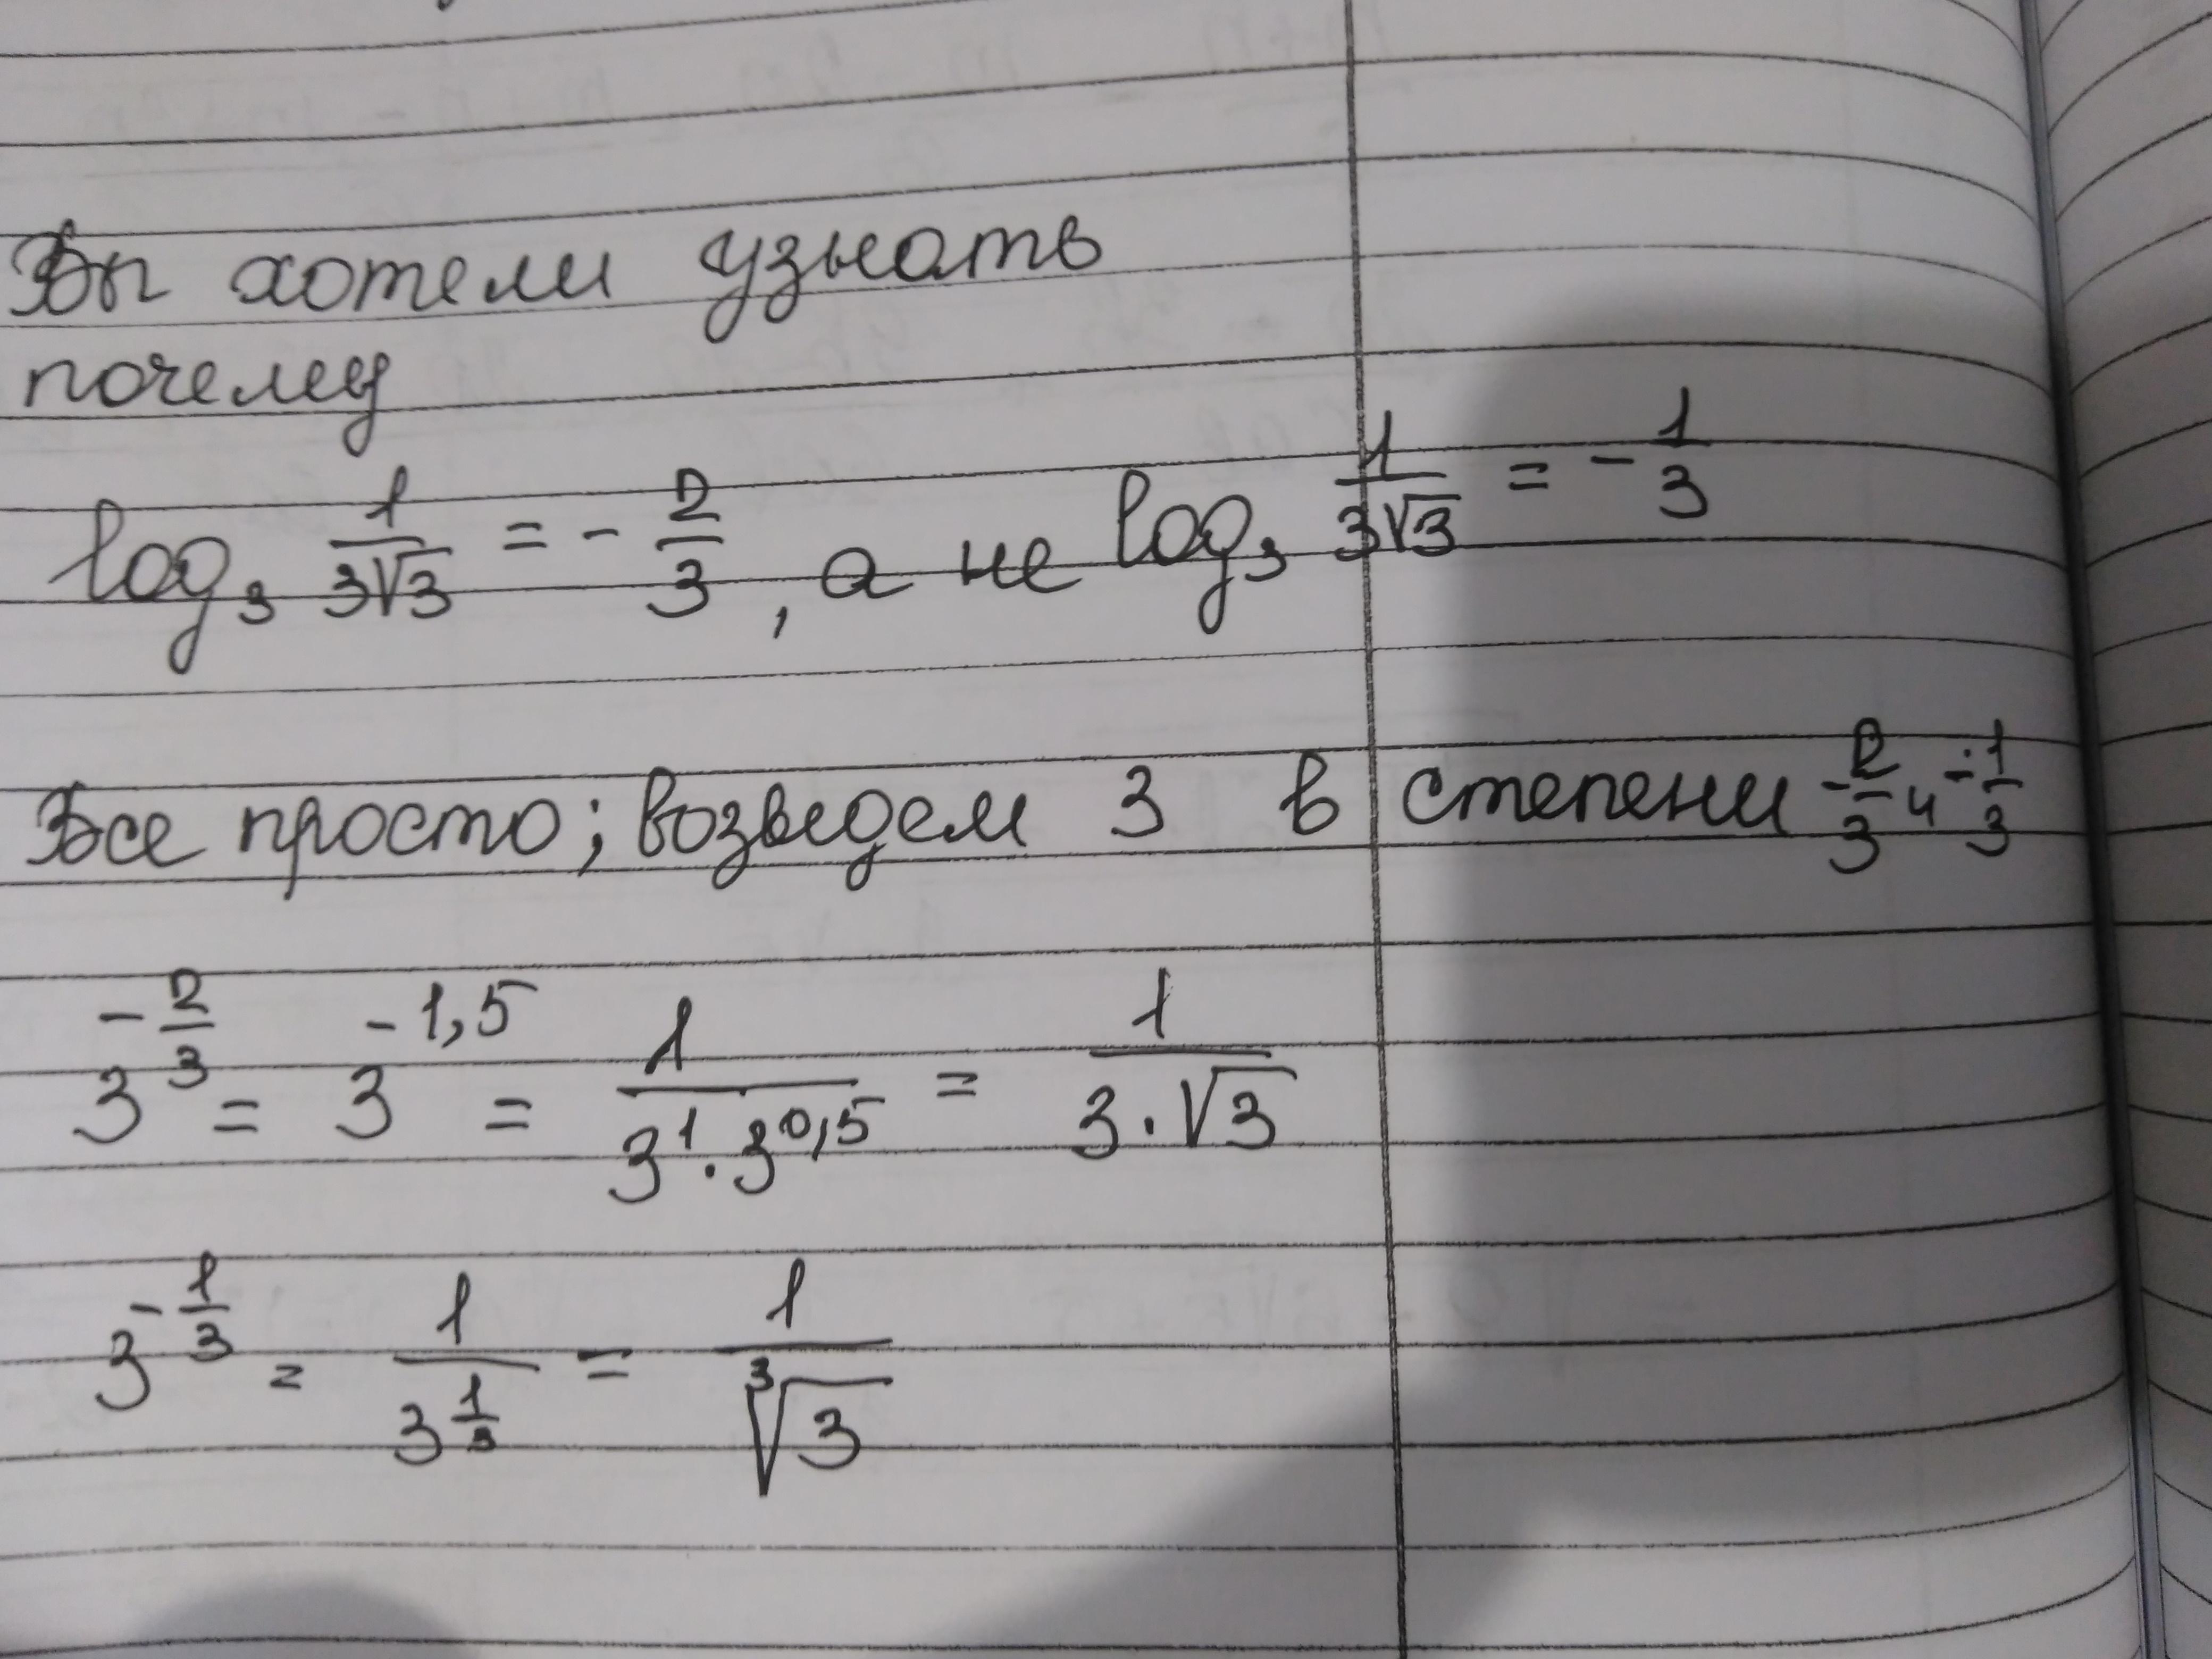 Вы хотели узнать
почему
log₃ 1/(3√3) = - 2/3 , а не log₃ 1/(3√3) = - 1/3
Все просто; возведем 3 в степени -2/3 и -1/3
3^(-2/3) = 3^(-1,5) = 1/(3¹·3^(0,5)) = 1/(3·√3)
3^(-1/3) = 1/(3^(1/3)) = 1/∛3